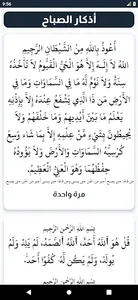 9:56
أذكار الصباح
أَعُوذُ بِاللهِ مِنْ الشَّيْطَانِ الرَّجِيمِ
اللهُ لاَ إِلَهَ إِلاَّ هُوَ الْحَيُّ الْقَيُّومُ لاَ تَأْخُذُهُ
سِنَةٌ وَلاَ نَوْمٌ لَّهُ مَا فِي السَّمَاوَاتِ وَمَا فِي
الأَرْضِ مَن ذَا الَّذِي يَشْفَعُ عِنْدَهُ إِلاَّ بِإِذْنِهِ
يَعْلَمُ مَا بَيْنَ أَيْدِيهِمْ وَمَا خَلْفَهُمْ وَلاَ
يُحِيطُونَ بِشَيْءٍ مِّنْ عِلْمِهِ إِلاَّ بِمَا شَاء وَسِعَ
كُرْسِيُّهُ السَّمَاوَاتِ وَالأَرْضَ وَلاَ يَؤُودُهُ
حِفْظُهُمَا وَهُوَ الْعَلِيُّ الْعَظِيمُ.
مرة واحدة
بِسْمِ اللهِ الرَّحْمنِ الرَّحِيم
قُلْ هُوَ ٱللَّهُ أَحَدٌ، ٱللَّهُ ٱلصَّمَدُ، لَمْ يَلِدْ
وَلَمْ يُولَدْ، وَلَمْ يَكُن لَّهُۥ كُفُوًا أَحَدٌۢ.